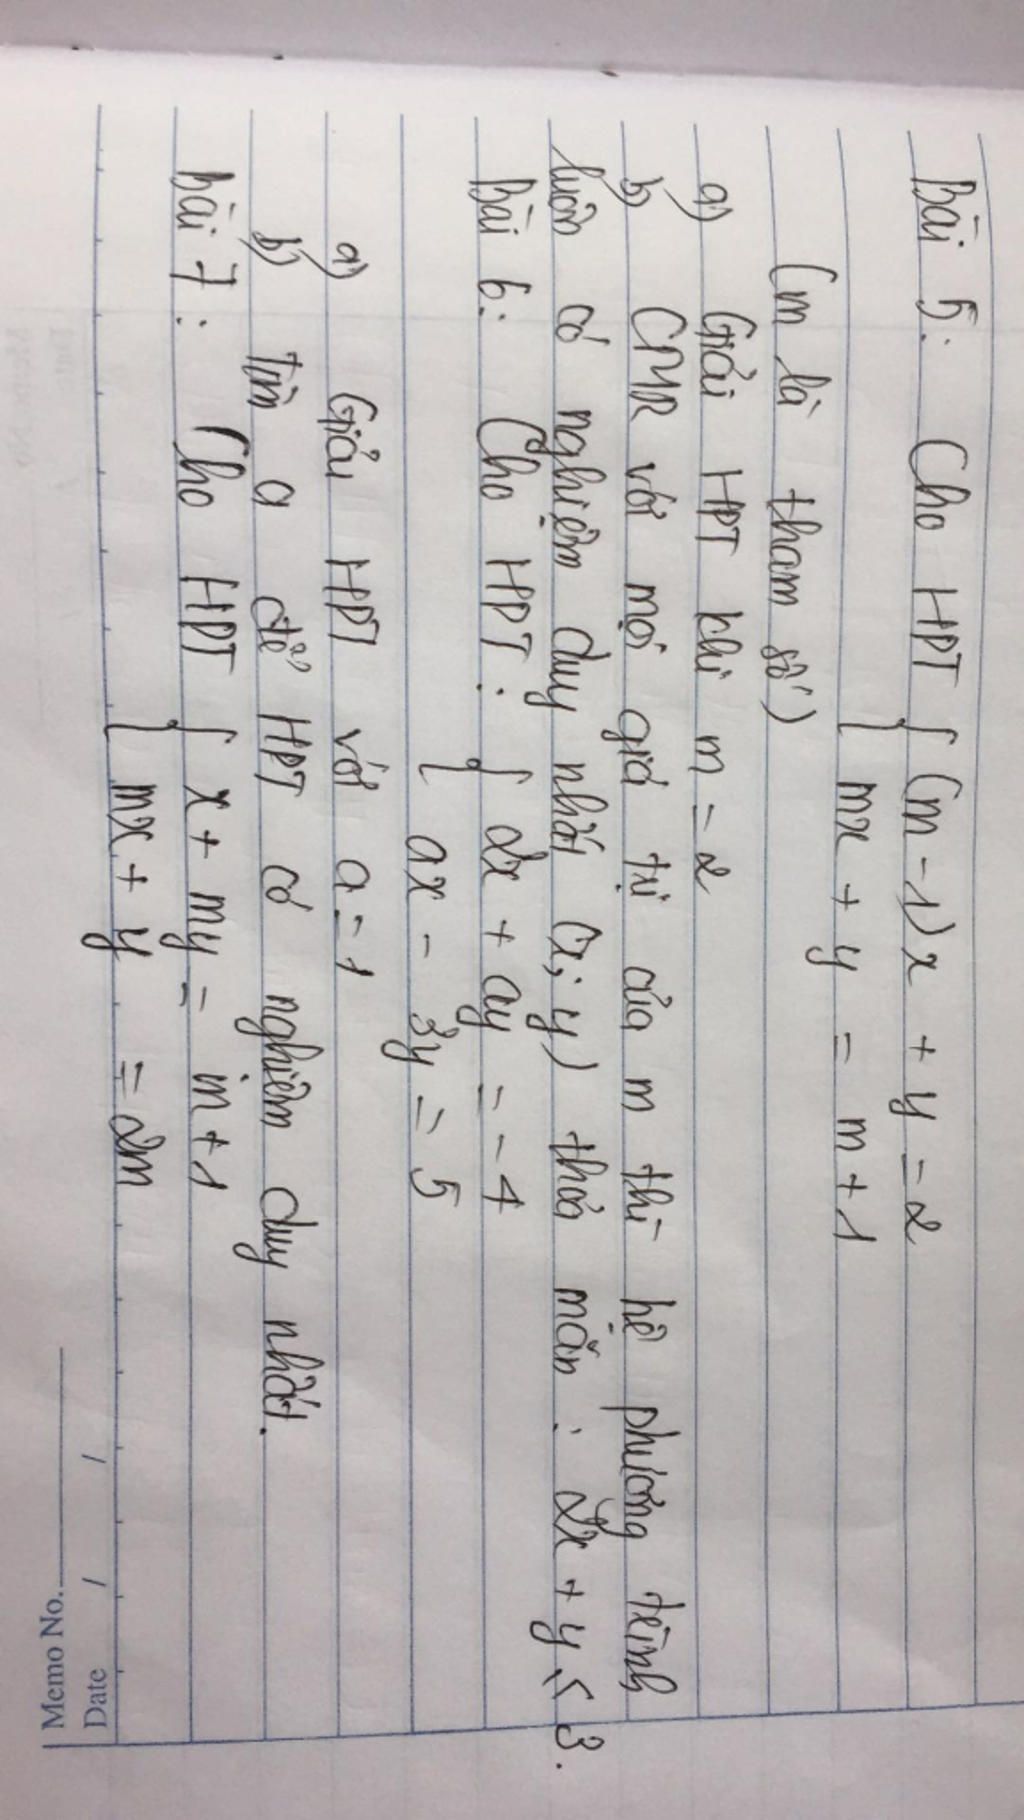 Bài 5: Cho HPT { (m-1)x + y = 2
{ mx + y = m + 1
(m là tham số)
a) Giải HPT khi m = 2
b) CMR với mọi giá trị của m thì hệ phương trình
luôn có nghiệm duy nhất (x; y) thoả mãn : 2x + y ≤ 3.
Bài 6: Cho HPT : { 2x + ay = -4
{ ax - 3y = 5
a) Giải HPT với a = 1
b) Tìm a để HPT có nghiệm duy nhất.
Bài 7 : Cho HPT { x + my = m + 1
{ mx + y = 2m
Memo No.
Date / /